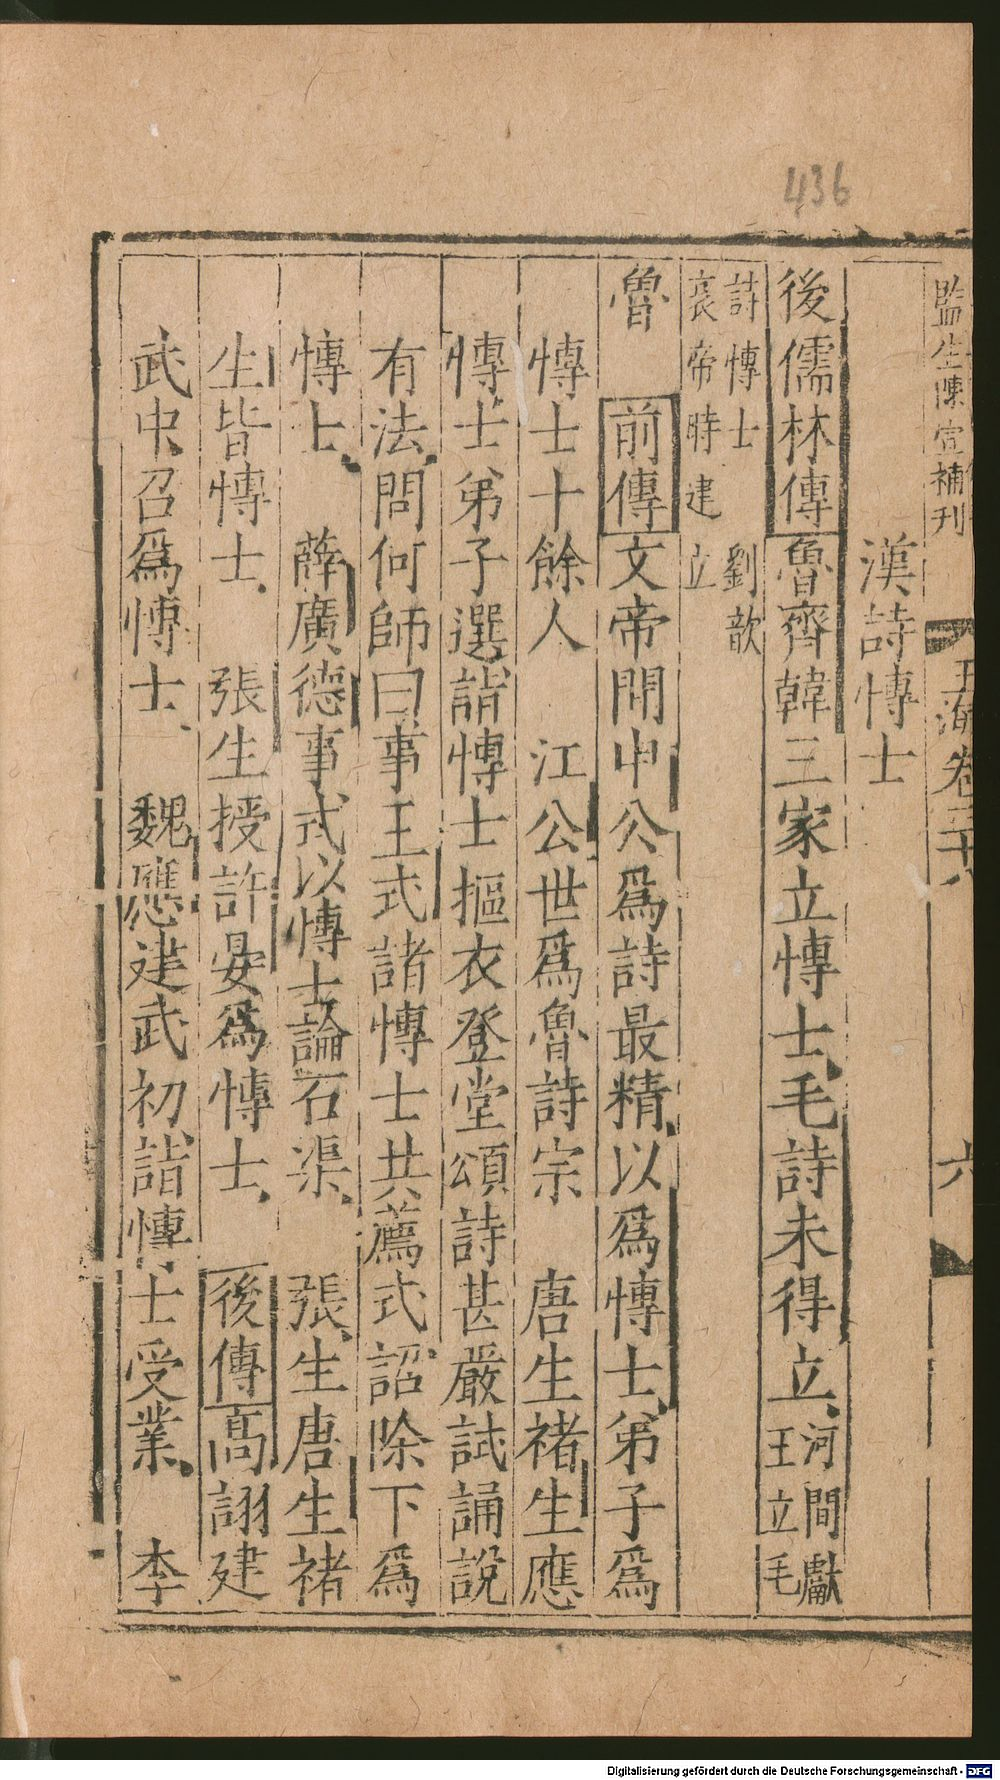 436
監生陳宣補刊
玉海卷三十八
六
漢詩博士
後儒林傳魯齊韓三家立博士毛詩未得立河間獻王立毛
詩博士劉歆哀帝時建立
魯 前傳文帝聞申公為詩最精以為博士弟子為
博士十餘人 江公世為魯詩宗 唐生褚生應
博士弟子選詣博士摳衣登堂頌詩甚嚴試誦說
有法問何師曰事王式諸博士共薦式詔除下為
博士 薛廣德事式以博士論石渠 張生唐生褚
生皆博士 張生授許晏為博士 後傳高詡建
武中召為博士 魏應建武初詣博士受業 李
Digitalisierung gefördert durch die Deutsche Forschungsgemeinschaft - DFG